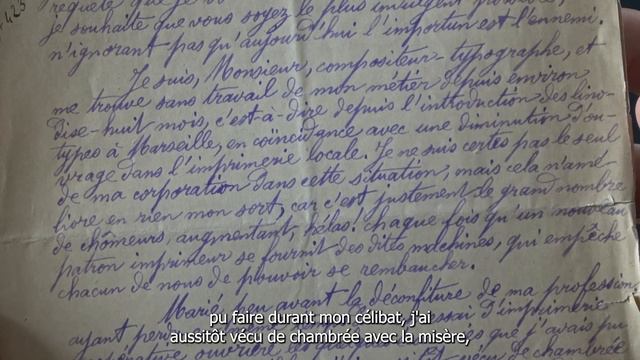 423
requête que je
je souhaite que vous soyez le plus indulgent possible,
n'ignorant pas qu'aujourd'hui l'importun est l'ennemi.
Je suis, Monsieur, compositeur-typographe, et
me trouve sans travail de mon métier depuis environ
dise-huit mois, c'est-à-dire depuis l'introduction des lino-
types à Marseille, en coïncidance avec une diminution d'ou-
vrage dans l'imprimerie locale. Je ne suis certes pas le seul
de ma corporation dans cette situation, mais cela n'amé-
liore en rien mon sort, car c'est justement le grand nombre
de chômeurs, augmentant, hélas! chaque fois qu'un nouveau
patron imprimeur se fournit des dites machines, qui empêche
chacun de nous de pouvoir se rembaucher.
Marié peu avant la déconfiture de ma profession,
ayant d'imprimerie
que j'avais pu
de chambrée
pu faire durant mon célibat, j'ai
aussitôt vécu de chambrée avec la misère,